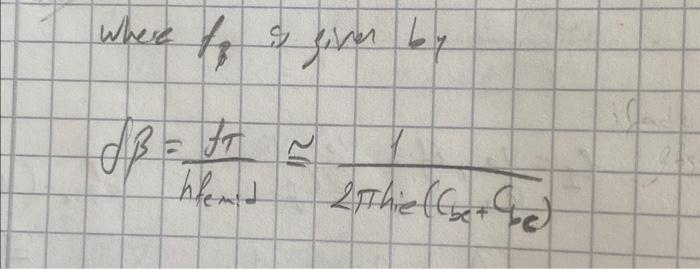 where fβ is given by
fβ = fT / hfemid ≅ 1 / 2πhie(Cbc + Cbe)